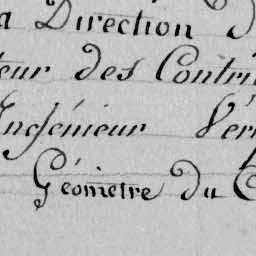 a Direction d
teur des Contri
Ingénieur Véri
Géometre du C